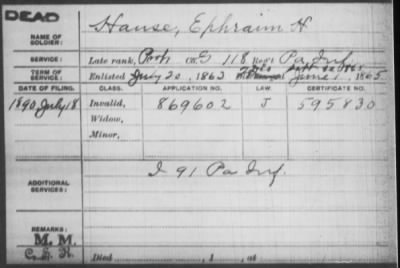 DEAD
NAME OF SOLDIER: Hause, Ephraim H
SERVICE: Late rank, Co. G 118 Reg't Pa Inf
TERM OF SERVICE: Enlisted July 20, 1863 June 1, 1865
DATE OF FILING. CLASS. APPLICATION NO. LAW. CERTIFICATE NO.
1890 July 18 Invalid, 869602 J 595830
Widow,
Minor,
ADDITIONAL SERVICES: I 91 Pa Inf.
REMARKS:
M. M.
C. S. R. Died , 1 , at